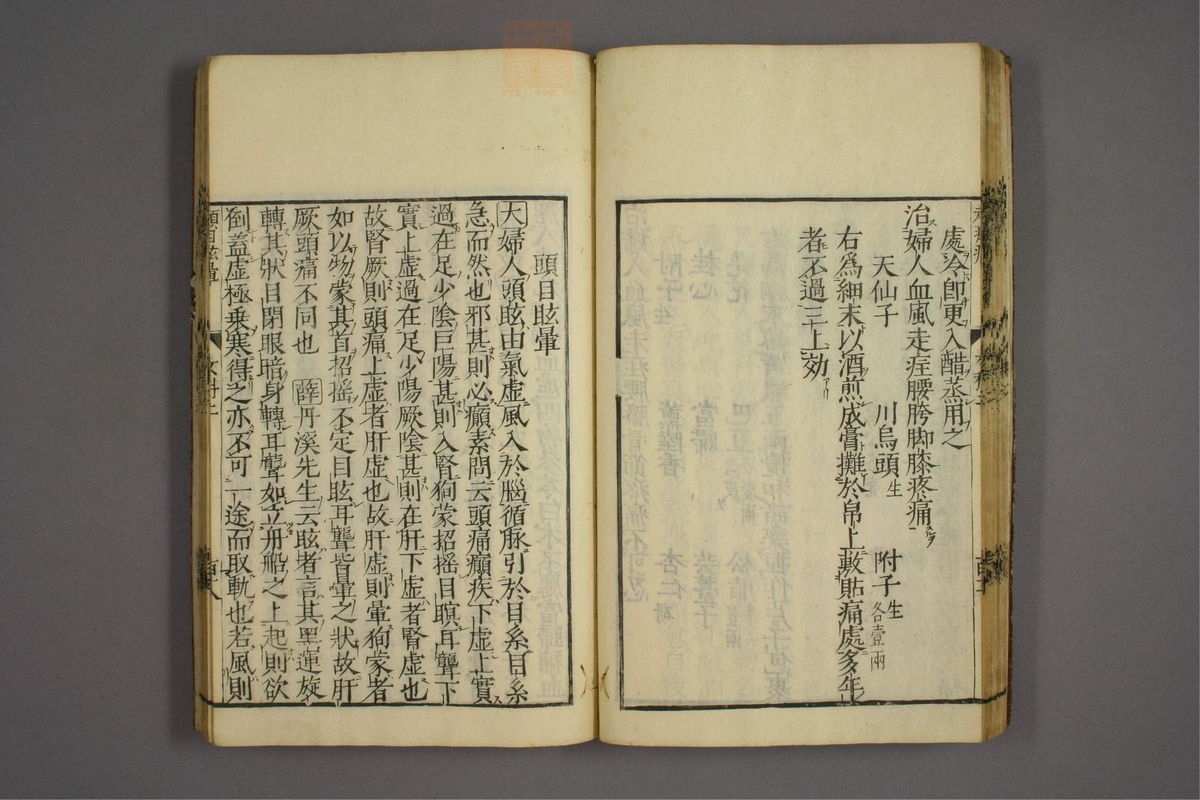 處冷即更入醋蒸用之
治婦人血風走疰腰胯脚膝疼痛
天仙子 川烏頭生 附子生各壹兩
右爲細末以酒煎成膏攤於帛上敷貼痛處多年
者不過三上効
頭目眩暈
大婦人頭眩由氣虛風入於腦循脉引於目系目系
急而然也邪甚則必癲素問云頭痛癲疾下虛上實
過在足少陰巨陽甚則入腎狥蒙招摇目瞑耳聾下
實上虛過在足少陽厥陰甚則在肝下虛者腎虛也
故腎厥則頭痛上虛者肝虛也故肝虛則暈狥蒙者
如以物蒙其首招摇不定目眩耳聾皆暈之狀故肝
厥頭痛不同也 薛丹溪先生云眩者言其黑運旋
轉其狀目閉眼暗身轉耳聾如立舟船之上起則欲
倒蓋虛極乗寒得之亦不可一途而取軌也若風則
頭目眩暈